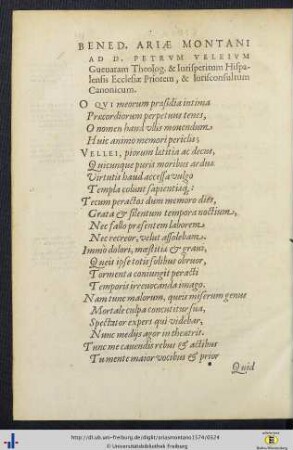 BENED. ARIÆ MONTANI
AD D. PETRVM VELEIVM
Gueuaram Theolog. & Iurisperitum Hispa-
lensis Ecclesiæ Priorem, & Iurisconsultum
Canonicum.
O QVI meorum præsidia intima
Præcordiorum perpetuus tenes,
O nomen haud vllis mouendum
Huic animo memori periclis;
VELLEI, piorum lætitia ac decus,
Quicunque puris moribus ardua
Virtutis haud accessa vulgo
Templa colunt sapientiæq;:
Tecum peractas dum memoro dies,
Grata & silentum tempora noctium,
Nec fallo præsentem laborem,
Nec recreor, velut assolebam.
Immò dolori, mæstitia & graui,
Queis ipse totis solibus obruor,
Tormenta coniungit peracti
Temporis irreuocanda imago.
Nam tunc malorum, queis miserum genus
Mortale culpa concutitur sua,
Spectator expers qui videbar,
Nunc medijs agor in theatris.
Tunc me cauendis rebus & actibus
Tu mente maior vocibus & prior
Quid
http://dl.ub.uni-freiburg.de/diglit/ariasmontano1574/0324
© Universitätsbibliothek Freiburg